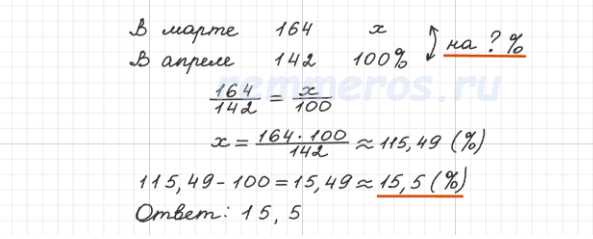 В марте 164 x
В апреле 142 100% на ? %
164/142 = x/100
x = 164·100/142 ≈ 115,49 (%)
115,49 - 100 = 15,49 ≈ 15,5 (%)
Ответ: 15,5